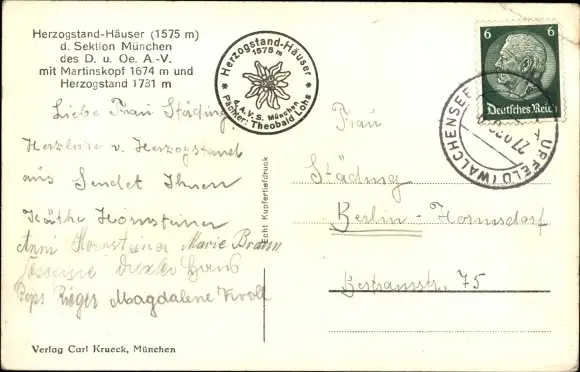 Herzogstand-Häuser (1575 m)
d. Sektion München
des D. u. Oe. A.-V.
mit Martinskopf 1674 m und
Herzogstand 1731 m
Herzogstand-Häuser
1575 m
d. A.V.S. München
Pächter: Theobald Lohs
6 6
Deutsches Reich
URFELD (WALCHENSEE)
Liebe Frau Städing!
Herzliche v. Herzogstand
aus Sendet Ihnen
Käthe Hornsteiner
Anni Hornsteiner Marie Braun
Hans
Rieger Magdalene
Echt Kupfertiefdruck
Frau
Städing
Berlin - Hermsdorf
75
Verlag Carl Krueck, München